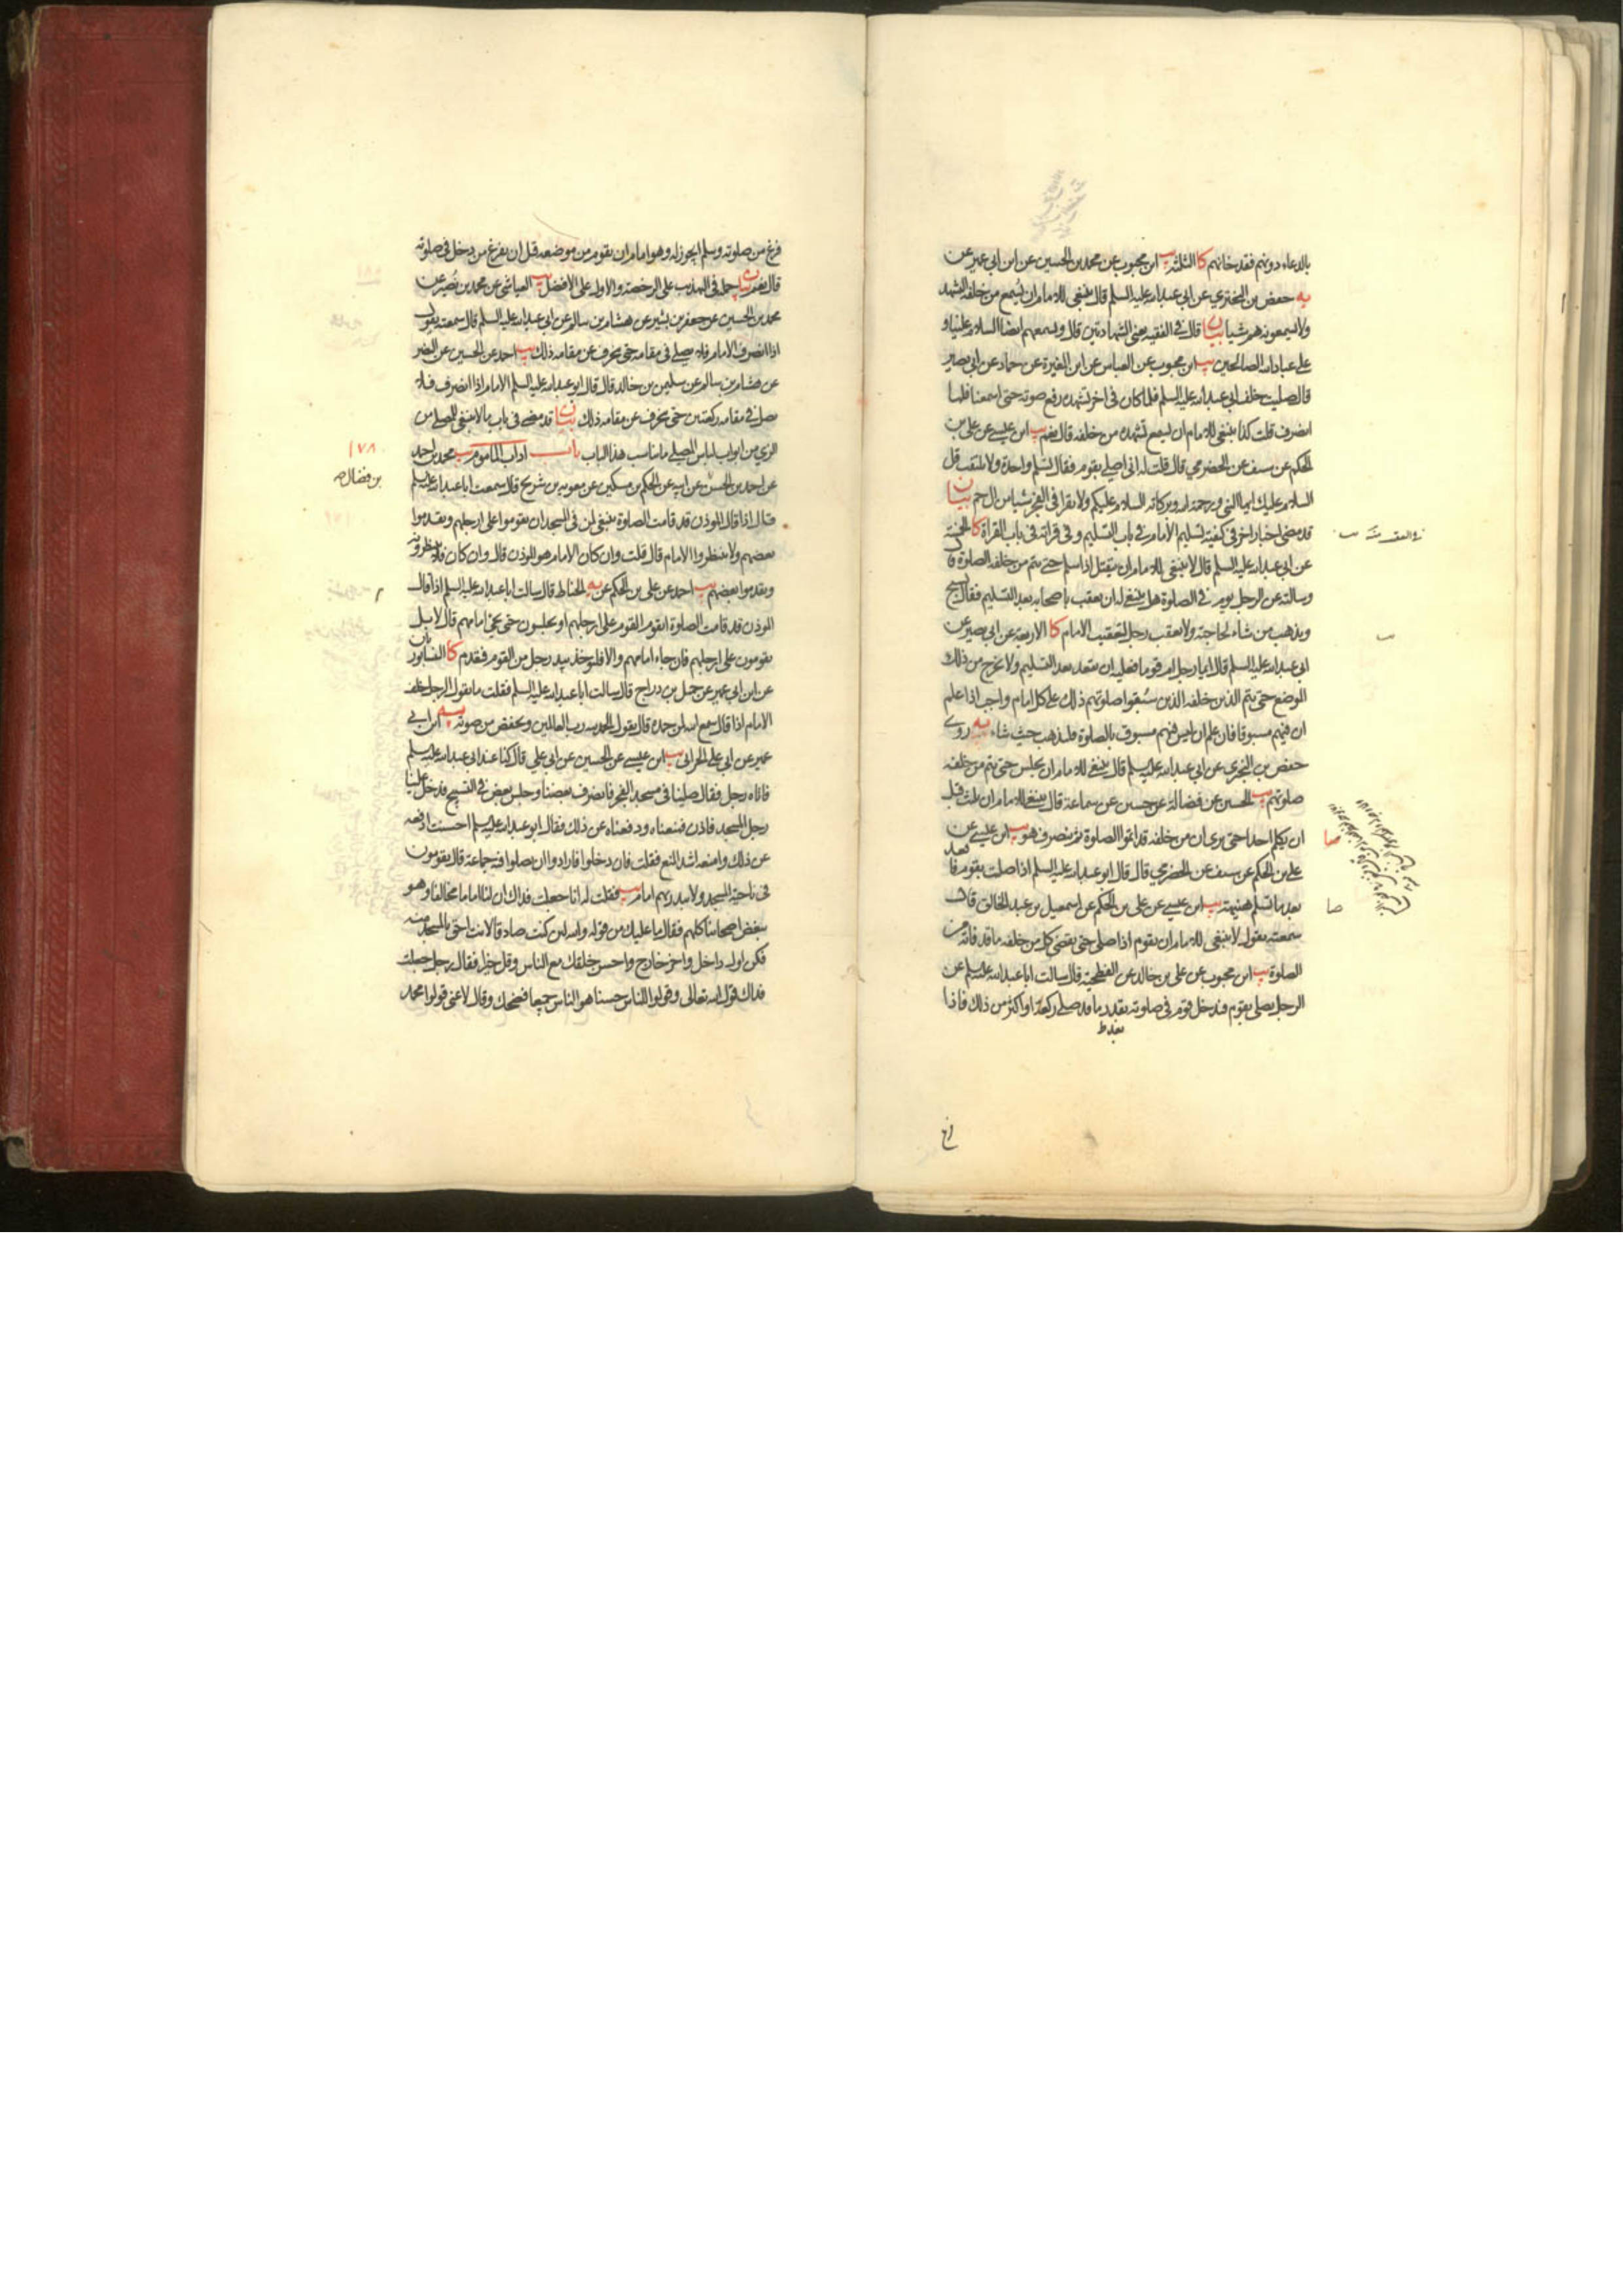 بالدعاء دونهم فقد خانهم كا الثلثة يب ابن محبوب عن محمد بن الحسين عن ابن ابي عمير عن
يه حفص بن البختري عن ابي عبدالله عليه السلم قال ينبغي للامام ان يسمع من خلفه التشهد
ولا يسمعونه هم شيئا بيان قال في الفقيه يعني الشهادتين قال ويسمعهم ايضا السلام علينا و
على عباد الله الصالحين يب ابن محبوب عن العباس عن ابن المغيرة عن حماد عن ابي بصير
قال صليت خلف ابي عبدالله عليه السلم فلما كان في اخر تشهده رفع صوته حتى اسمعنا فلما
انصرف قلت كذا ينبغي للامام ان يسمع تشهده من خلفه قال نعم يب ابن عيسى عن علي بن
الحكم عن سيف عن الحضرمي قال قلت له اني اصلي بقوم فقال تسلم واحدة ولا تلتفت قل
السلام عليك ايها النبي ورحمة الله وبركاته السلام عليكم ولا تقرا في الفجر شيئا من ال حم بيان
قد مضى اخبار اخر في كيفية تسليم الامام في باب التسليم وفي قراءته في باب القراءة كا الخمسة
عن ابي عبدالله عليه السلم قال لا ينبغي للامام ان ينفتل اذا سلم حتى يتم من خلفه الصلوة ق
وسالته عن الرجل يؤم في الصلوة هل ينبغي له ان يعقب باصحابه بعد التسليم فقال يسبح
ويذهب من شاء لحاجته ولا يعقب رجل لتعقيب الامام كا الاربعة عن ابي بصير عن
ابي عبدالله عليه السلم قال ايما رجل ام قوما فعليه ان يقعد بعد التسليم ولا يخرج من ذلك
الموضع حتى يتم الذين خلفه الذين سبقوا صلوتهم ذلك على كل امام واجب اذا علم
ان فيهم مسبوقا فان علم ان ليس فيهم مسبوق بالصلوة فليذهب حيث شاء يه روى
حفص بن البختري عن ابي عبدالله عليه السلم قال ينبغي للامام ان يجلس حتى يتم من خلفه
صلوتهم يب الحسين عن فضالة عن حسين عن سماعة قال ينبغي للامام ان يلبث قبل
ان يكلم احدا حتى يرى ان من خلفه قد اتموا الصلوة ثم ينصرف هو يب ابن عيسى عن
علي بن الحكم عن سيف عن الحضرمي قال قال ابو عبدالله عليه السلم اذا صليت بقوم فاقعد
بعد ما تسلم هنيهة يب ابن عيسى عن علي بن الحكم عن اسمعيل بن عبد الخالق قال
سمعته يقول لا ينبغي للامام ان يقوم اذا صلى حتى يقضي كل من خلفه ما قد فاته من
الصلوة يب ابن محبوب عن علي بن خالد عن الفطحية قال سالت ابا عبدالله عليه السلم عن
الرجل يصلي بقوم فيدخل قوم في صلوته بقدر ما قد صلى ركعة او اكثر من ذلك فاذا
صا
صا
فرغ من صلوته وسلم ايجوز له وهو امام ان يقوم من موضعه قبل ان يفرغ من دخل في صلوته
قال نعم بيان حمله في التهذيب على الرخصة والاولى على الافضل يب العياشي عن محمد بن نصير عن
محمد بن الحسين عن جعفر بن بشير عن هشام بن سالم عن ابي عبدالله عليه السلم قال سمعته يقول
اذا انصرف الامام فلا يصلي في مقامه حتى ينحرف عن مقامه ذلك يب احمد عن الحسين عن النضر
عن هشام بن سالم عن سليمن بن خالد قال قال ابو عبدالله عليه السلم الامام اذا انصرف فلا
يصلي في مقامه ركعتين حتى ينحرف عن مقامه ذلك بيان قد مضى في باب ما لا ينبغي للمصلي من
الزي من ابواب لباس المصلي ما يناسب هذا الباب باب اداب الماموم يب محمد بن احمد
عن احمد بن الحسن عن ابيه عن الحكم بن مسكين عن معوية بن شريح قال سمعت ابا عبدالله عليه السلم
قال اذا قال المؤذن قد قامت الصلوة ينبغي لمن في المسجد ان يقوموا على ارجلهم ويقدموا
بعضهم ولا ينتظروا الامام قال قلت وان كان الامام هو المؤذن قال وان كان فلا ينتظرونه
ويقدموا بعضهم يب احمد عن علي بن الحكم عن يه الحناط قال سالت ابا عبدالله عليه السلم اذا قال
المؤذن قد قامت الصلوة ايقوم القوم على ارجلهم او يجلسون حتى يجئ امامهم قال لا بل
يقومون على ارجلهم فان جاء امامهم والا فليؤخذ بيد رجل من القوم فيقدم كا النيسابوريان
عن ابن ابي عمير عن جميل بن دراج قال سالت ابا عبدالله عليه السلم فقلت ما يقول الرجل خلف
الامام اذا قال سمع الله لمن حمده قال يقول الحمد لله رب العالمين ويخفض من صوته يه ابن ابي
عمير عن ابي علي الحراني يب ابن عيسى عن الحسين عن ابي علي قال كنا عند ابي عبدالله عليه السلم
فاتاه رجل فقال صلينا في مسجد الفجر فانصرف بعضنا وجلس بعض في التسبيح فدخل علينا
رجل المسجد فاذن فمنعناه ودفعناه عن ذلك فقال ابو عبدالله عليه السلم احسنت ادفعه
عن ذلك وامنعه اشد المنع فقلت فان دخلوا فارادوا ان يصلوا فيه جماعة قال يقومون
في ناحية المسجد ولا يبدر بهم امام يب فقلت له انا جعلت فداك ان لنا اماما مخالفا وهو
يبغض اصحابنا كلهم فقال ما عليك من قوله والله لئن كنت صادقا لانت احق بالمسجد منه
فكن اول داخل واخر خارج واحسن خلقك مع الناس وقل خيرا فقال رجل جعلت
فداك قول الله تعالى وقولوا للناس حسنا هو للناس جميعا فضحك وقال لا عنى قولوا محمد
١٧٨
بن فضال صه